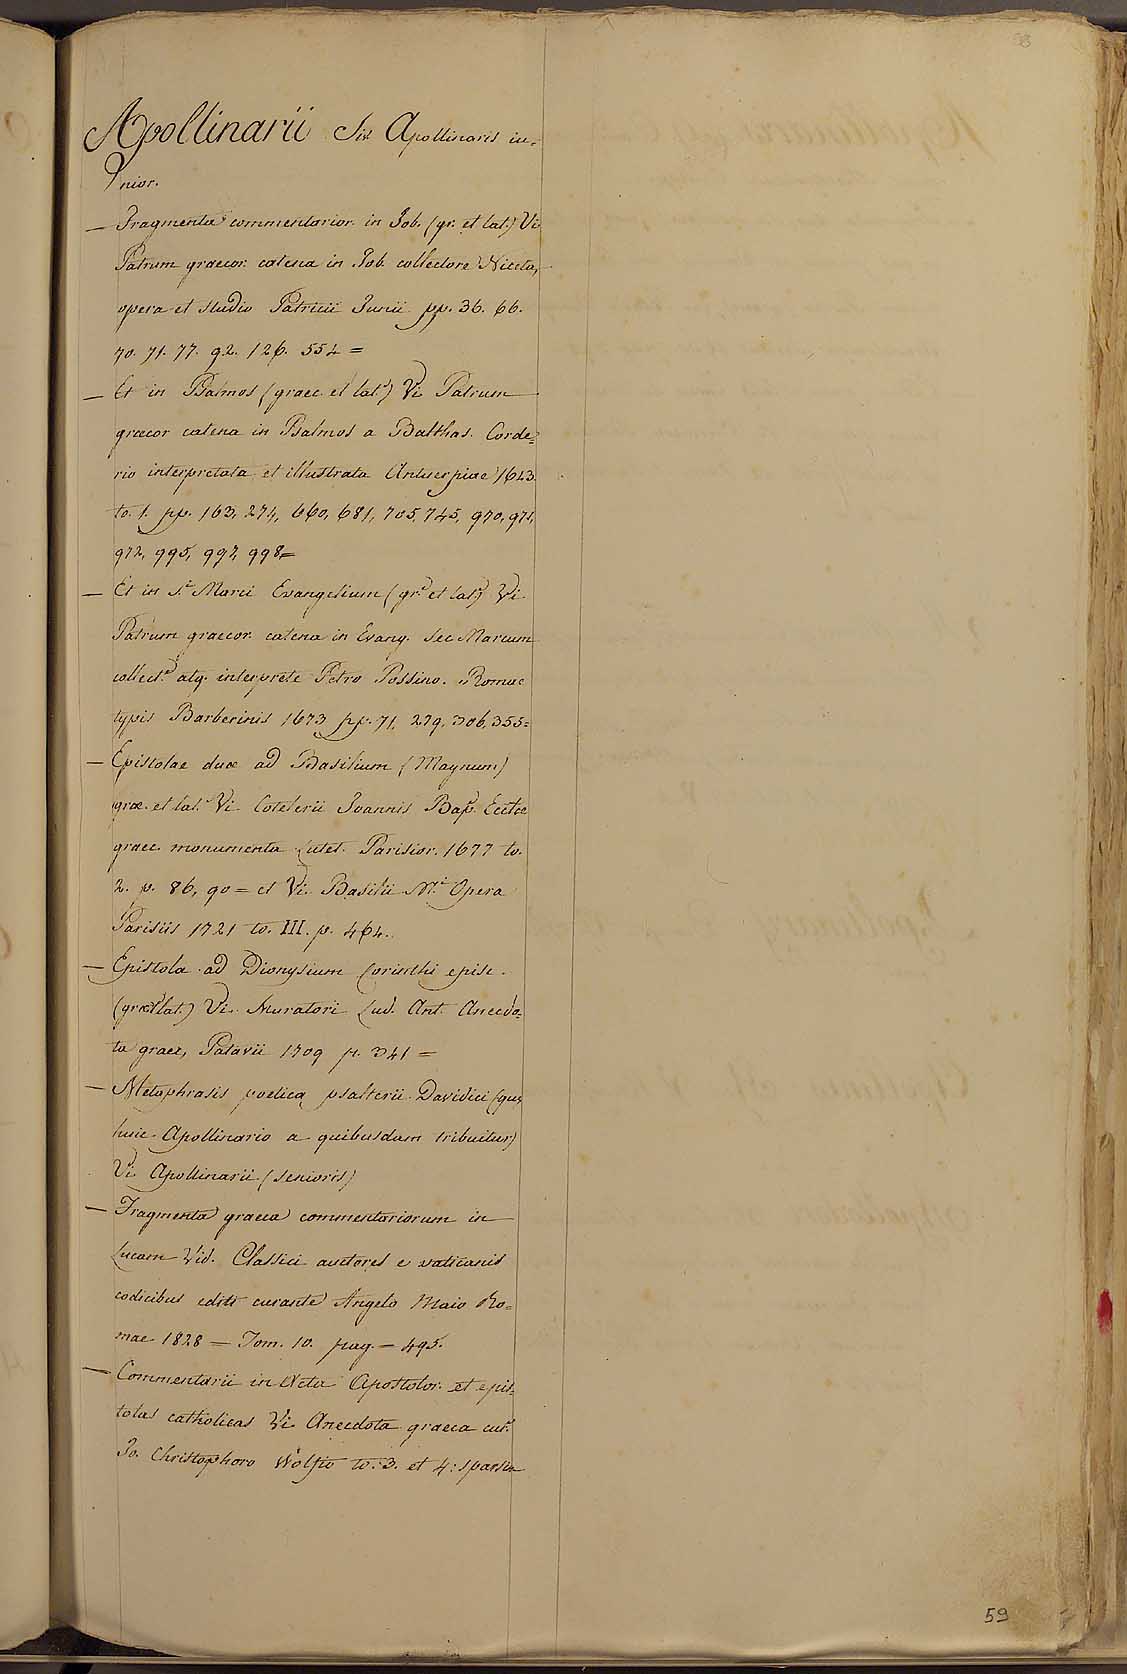 58
Apollinarii Sive Apollinaris iu=
nior.
— Fragmenta commentarior. in Job. (gr. et lat.) Vi
Patrum graecor. catena in Job. collectore Niceta,
opera et studio Patricii Junii pp. 36. 66.
70. 71. 77. 92. 126. 554 =
— Et in Psalmos (graec. et lat.) Vi Patrum
graecor catena in Psalmos a Balthas. Corde=
rio interpretata et illustrata Antuerpiae 1643.
to. 1. pp. 163, 274, 660, 681, 705, 745, 970, 971,
972, 995, 997, 998=
— Et in S.i Marci Evangelium (gr. et lat.) Vi
Patrum graecor. catena in Evang. sec Marcum
collect.e atq. interprete Petro Possino. Romae
typis Barberinis 1673 pp. 71, 279, 306, 355=
— Epistolae duae ad Basilium (Magnum)
grae. et lat. Vi Cotelerii Joannis Bap. Ecclae
graec. monumenta Lutet. Parisior. 1677 to.
2. p. 86, 90 = et Vi. Basilii M.i Opera
Parisiis 1721 to. III. p. 464.
— Epistola ad Dionysium Corinthi episc.
(grae et lat.) Vi. Muratori Lud. Ant. Anecdo=
ta graec, Patavii 1709 p. 341 =
— Metaphrasis poetica psalterii Davidici (quae
huic Apollinario a quibusdam tribuitur)
Vi Apollinarii (senioris)
— Fragmenta graeca commentariorum in
Lucam Vid. Classici auctores e vaticanis
codicibus editi curante Angelo Maio Ro=
mae 1828 = Tom. 10. pag. = 495.
— Commentarii in Acta Apostolor. et epis=
tolas catholicas Vi Anecdota graeca cur.e
Jo. Christophoro Wolfio to. 3. et 4: sparsim
59